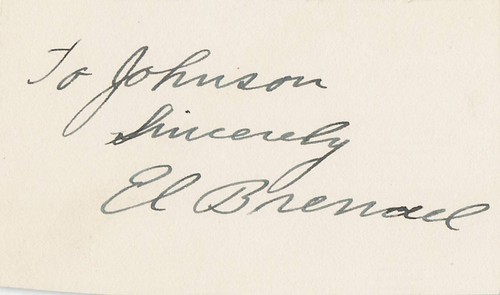 To Johnson
Sincerely
El Brendel